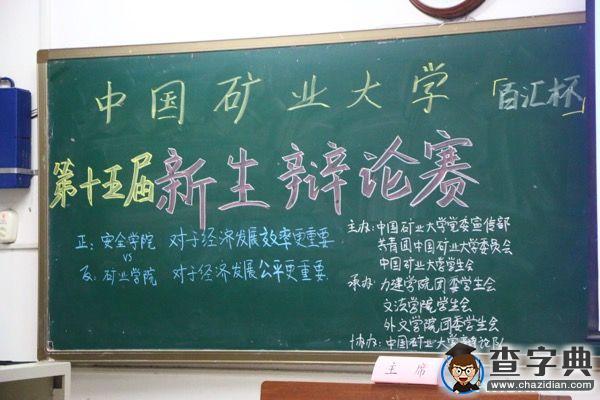 中国矿业大学
「百汇杯」
第十五届新生辩论赛
正：安全学院 对于经济发展效率更重要
VS
反：矿业学院 对于经济发展公平更重要
主办：中国矿业大学党委宣传部
共青团中国矿业大学委员会
中国矿业大学学生会
承办：力建学院团委学生会
文法学院学生会
外文学院团委学生会
协办：中国矿业大学辩论队
主席
查字典
www.chazidian.com